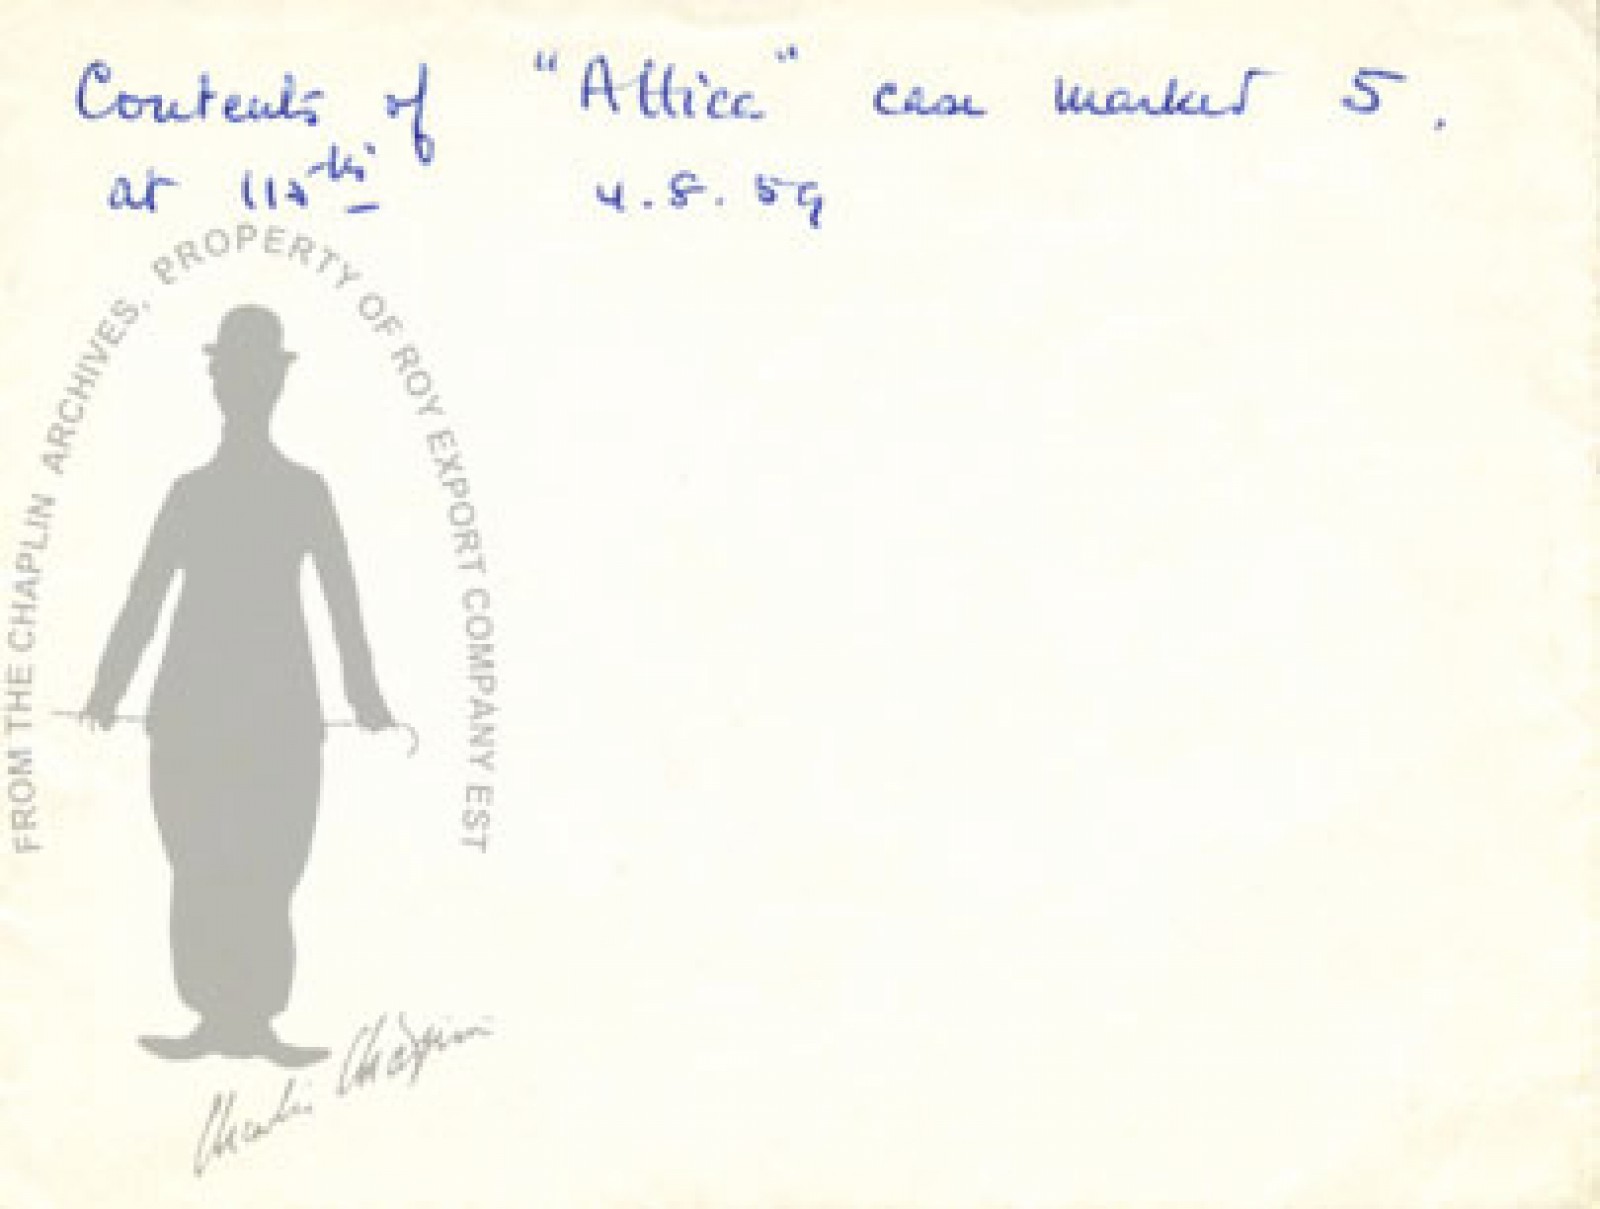 Contents of "Attica" case marked 5.
at 11
4.8.59
FROM THE CHAPLIN ARCHIVES, PROPERTY OF ROY EXPORT COMPANY EST
Charlie Chaplin